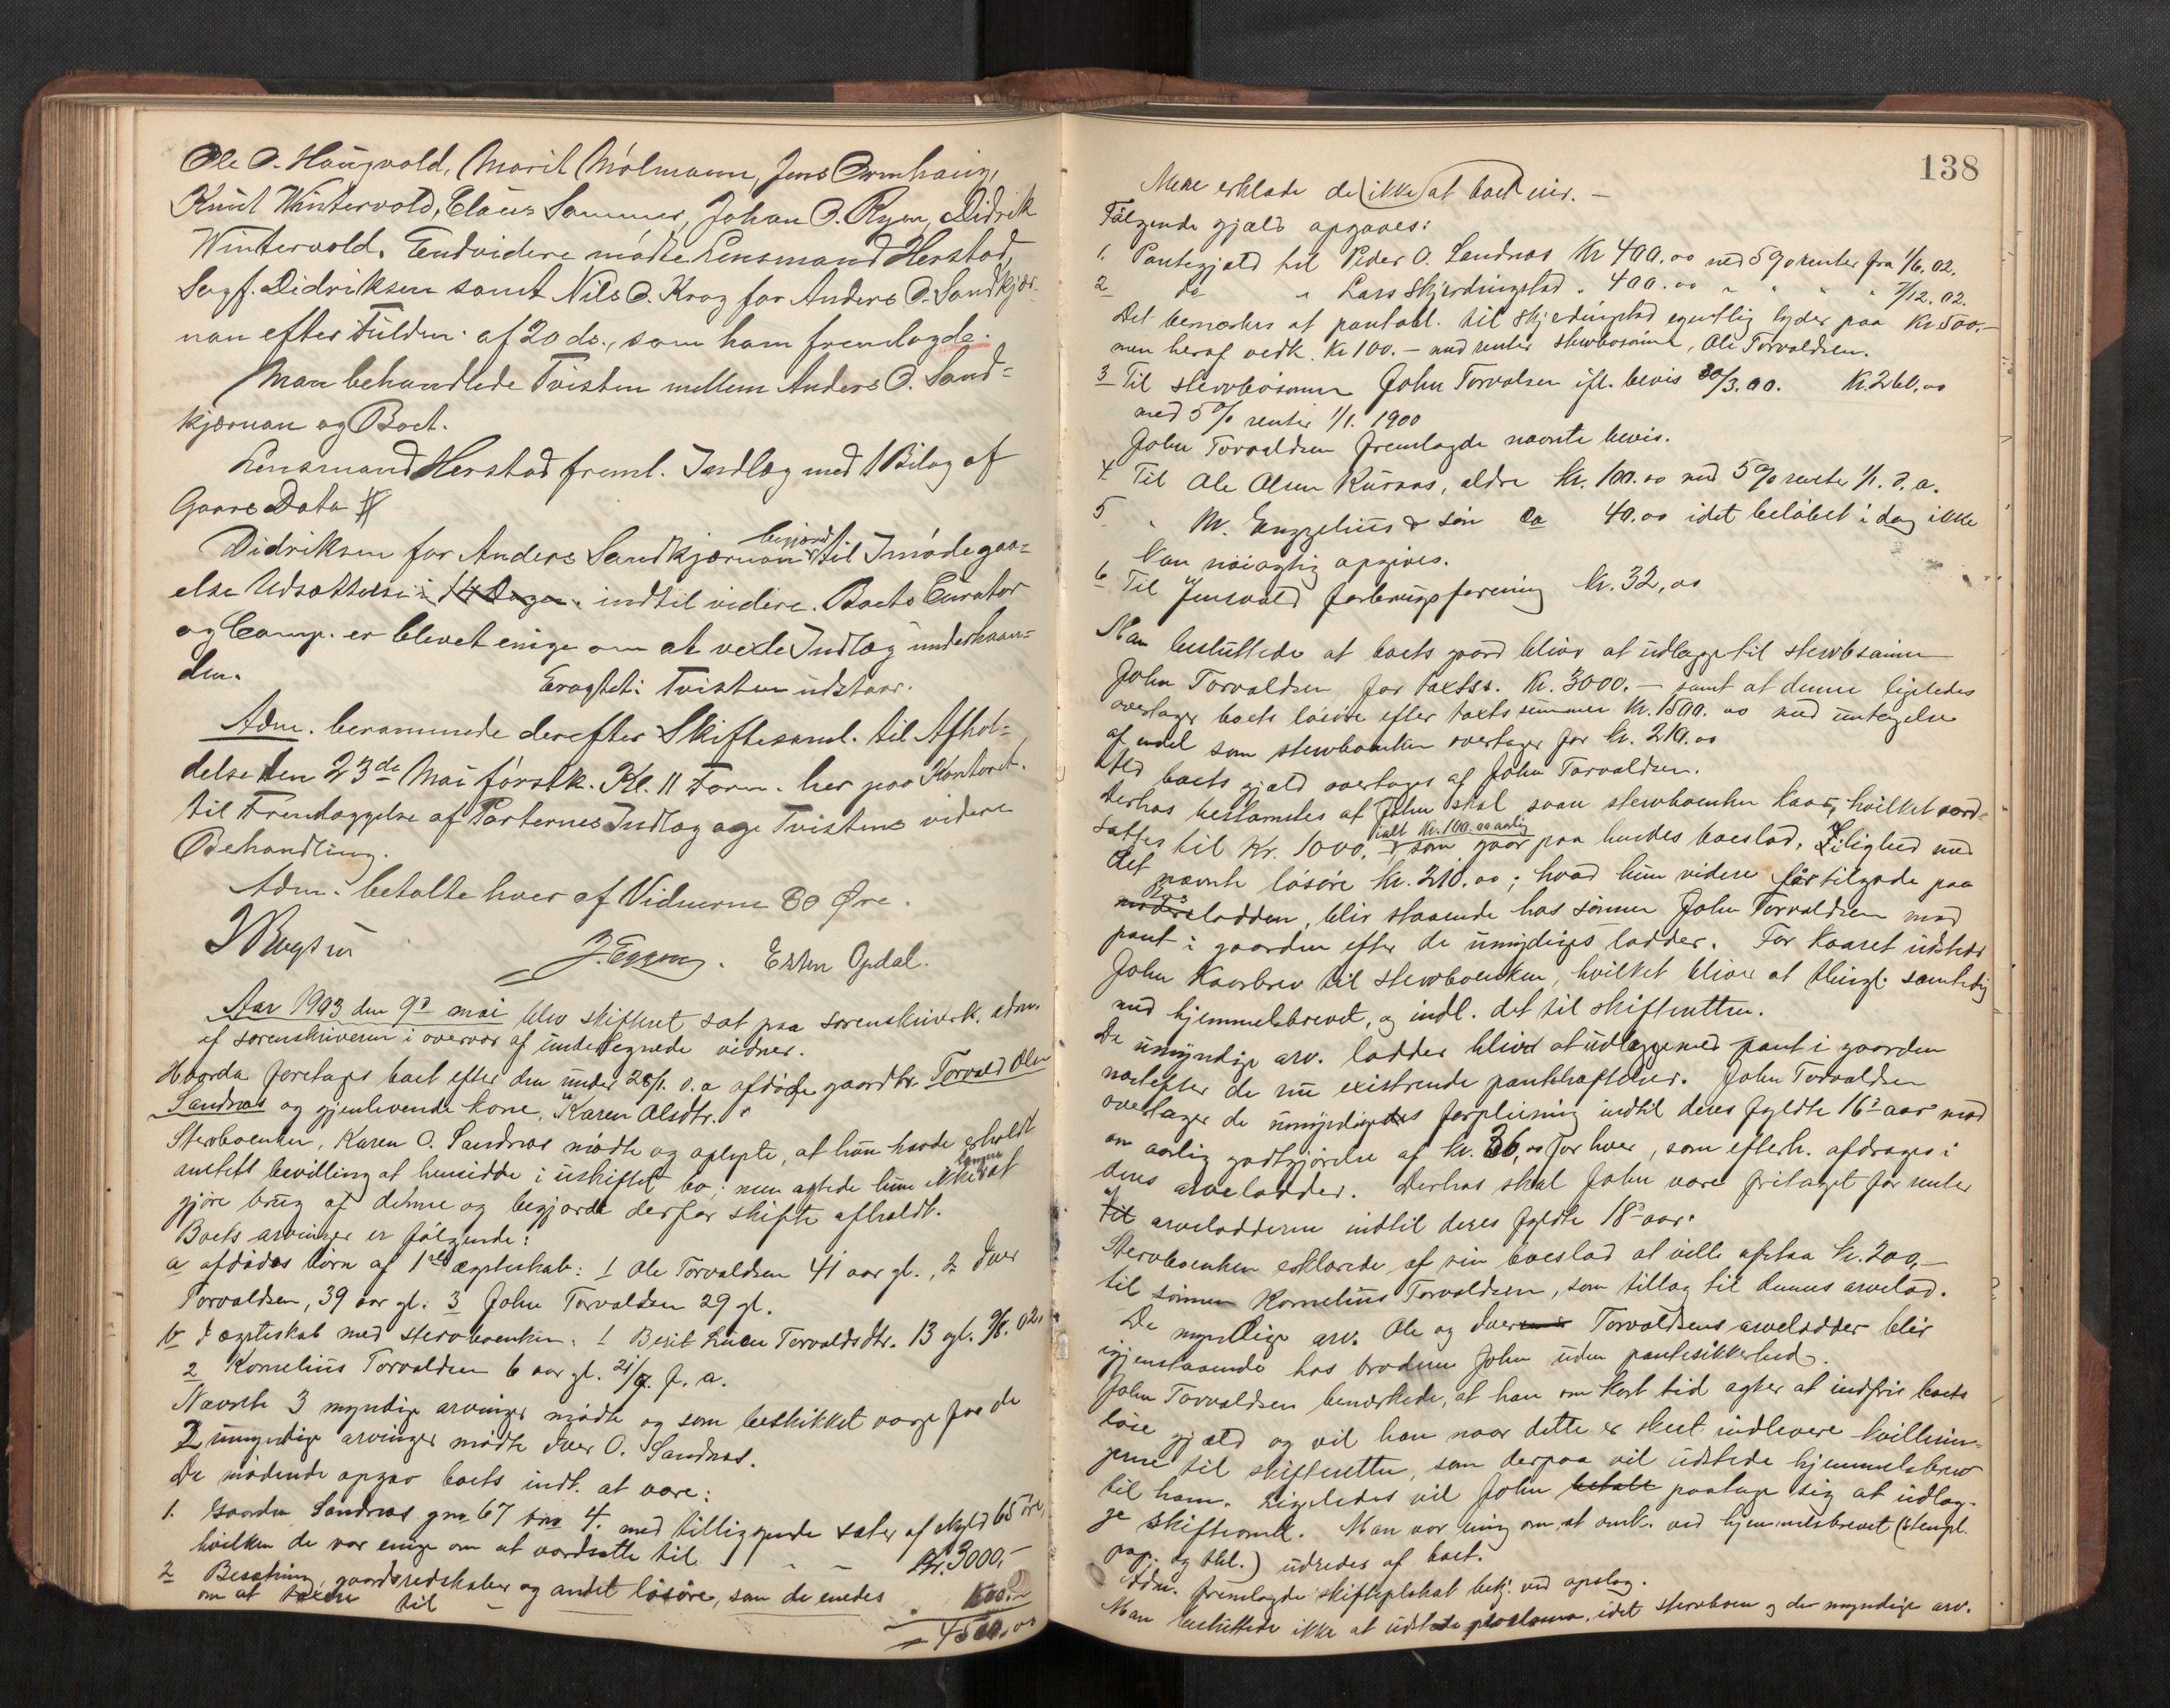 Ole O. Haugvold, Marit Mölmann, Jens Ormhaug,
Knut Wintervold, Claus Sommer, Johan O. Ryen, Didrik
Wintervold. Endvidere mødte Lensmand Herstad,
Sagf. Didriksen samt Nils O. Krog for Anders O. Sandkjær-
nan efter Fuldm. af 20 ds., som han fremlagde.
Man behandlede Tvisten mellem Anders O. Sand=
kjærnan og Boet.
Lensmand Herstad freml. Indlæg med 1 Bilag af
Gaars Dato
Didriksen for Anders Sandkjærnan begjærd til Imødegaa=
else Udsættelse i 14 Dage. indtil videre. Boets Curator
og Comp. er blevet enige om at vexle Indlæg underhaan=
den. Eragtet: Tvisten udstaar.
Adm. berammede derefter Skiftesaml. til Afhol=
delse den 23de Mai förstk. Kl. 11 Form. her paa Kontoret.
til Fremlæggelse af Parternes Indlæg og Tvistens videre
Behandling.
Adm. betalte hver af Vidnerne 80 Øre.
J. Eggen. Esten Opdal.
Aar 1903 den 9d mai blev skifteret sat paa sorenskriverk. adm.
af sorenskriveren i overvær af undertegnede vidner.
Hvorda foretages boet efter den under 28/1. d. a afdöde gaardbr. Torvald Olsen
Sandnæs og gjenlevende kone, Karen Olsdtr.
Stervboenken, Karen O. Sandnæs mødte og oplyste, at hun havde erholdt
amtets bevilling at hensidde i uskiftet bo; men agtede hun ikke længre at
gjöre brug af denne og begjærde derfor skifte afholdt.
Boets arvinger er fölgende:
a afdödes börn af 1ste ægteskab: 1 Ole Torvaldsen 41 aar gl., 2 Iver
Torvaldsen, 39 aar gl. 3 John Torvaldsen 29 gl.
b I ægteskab med stervboenken: 1 Berit Torvaldsdtr. 13 gl.
2 Kornelius Torvaldsen 6 aar gl. f. a.
Nævnte 3 myndige arvinger mødte og som beskikket værge for de
2 umyndige arvinger mødte Iver O. Sandnæs.
De mødende opgav boets indt. at være:
1. Gaarden Sandnæs gno 67 bno 4. med tilliggende sæter af skyld 65 öre,
hvilken de var enige om at værdsætte til - - Kr. 3000,-
2 Besætning, gaardsredskaber og andet lösöre, som de enedes
om at taxere til - 1500.-
= 4500,00
138
Mere erklæde de ikke at boet eier. -
Følgende gjæld opgaves:
1. Pantegjæld til Peder O. Sandnæs Kr 400.00 med 5% renter fra 1/6. 02.
2 do " Lars Skjerdingstad " 400.00 " " " " 7/12. 02.
Det bemærkes at pantobl. til Skjerdingstad egentlig lyder paa Kr. 500.-
men heraf vedk. Kr 100.- med renter stervbosönnen, Ole Torvaldsen.
3 Til stervbosönnen John Torvalsen ifl. bevis 30/3. 00. Kr. 260.00
med 5% renter 1/1. 1900
John Torvaldsen fremlagde nævnte bevis.
4. Til Ole Olsen Kuraas, ældre Kr. 100.00 med 5% rente 1/1. d. a.
5 " M. Engzelius & sön Ca 40.00 idet belöbet i dag ikke
kan nöiagtig opgives.
6 Til Jensvold forbrugsforening Kr. 32,00
Man besluttede at boets gaard bliver at udlægge til stervbosönnen
John Torvaldsen for taxtss. Kr. 3000.- samt at denne ligeledes
overtager boets lösöre efter taxtssummen Kr. 1500.00 med undtagelse
af endel som stervboenken overtager for Kr. 210.00
Al boets gjæld overtages af John Torvaldsen.
Derhos bestemtes at John skal svare stervboenken kaar, hvilket værd-
sættes til Kr. 1000. ialt Kr. 100.00 aarlig som gaar paa hendes boeslod. I lighed med
det nævnte lösöre Kr. 210.00; hvad hun videre får tilgode paa
boeslodden, blir staaende hos sönnen John Torvaldsen mod
pant i gaarden efter de umyndiges lodder. For kaaret udsteder
John Kaarbrev til stervboenken, hvilket bliver at thingl. samtidig
med hjemmelsbrevet, og indl. det til skifteretten.
De umyndige arv. lodder bliver at udlægge med pant i gaarden
næstefter de nu existrende pantehæftelser. John Torvaldsen
overtager de umyndiges forpleining indtil deres fyldte 16d aar mod
en aarlig godtgjörelse af Kr. 36,00 for hver, som efterh. afdrages i
deres arvelodder. Derhos skal John være fritaget for renter
af arvelodderne indtil deres fyldte 18d aar.
Stervboenken erklærede af sin boeslod at ville afstaa Kr. 200,-
til sönnen Kornelius Torvaldsen, som tillæg til dennes arvelod.
De myndige arv. Ole og Iver Torvaldsens arvelodder blir
igjenstaaende hos broderen John uden pantesikkerhed.
John Torvaldsen bemærkede, at han om kort tid agter at indfri boets
löse gjæld og vil han naar dette er skeet indlevere kvitterin-
gerne til skifteretten, som derpaa vil udstede hjemmelsbrev
til ham. Ligeledes vil John betale paatage sig at udlæg-
ge skifteomk. Man var enig om, at omk. ved hjemmelsbrevet (stempl.
pap. og thl.) udredes af boet.
Adm. fremlagde skifteplakat bekj. ved opslag.
Man besluttede ikke at udstede proklama, idet stervboen og de myndige arv.